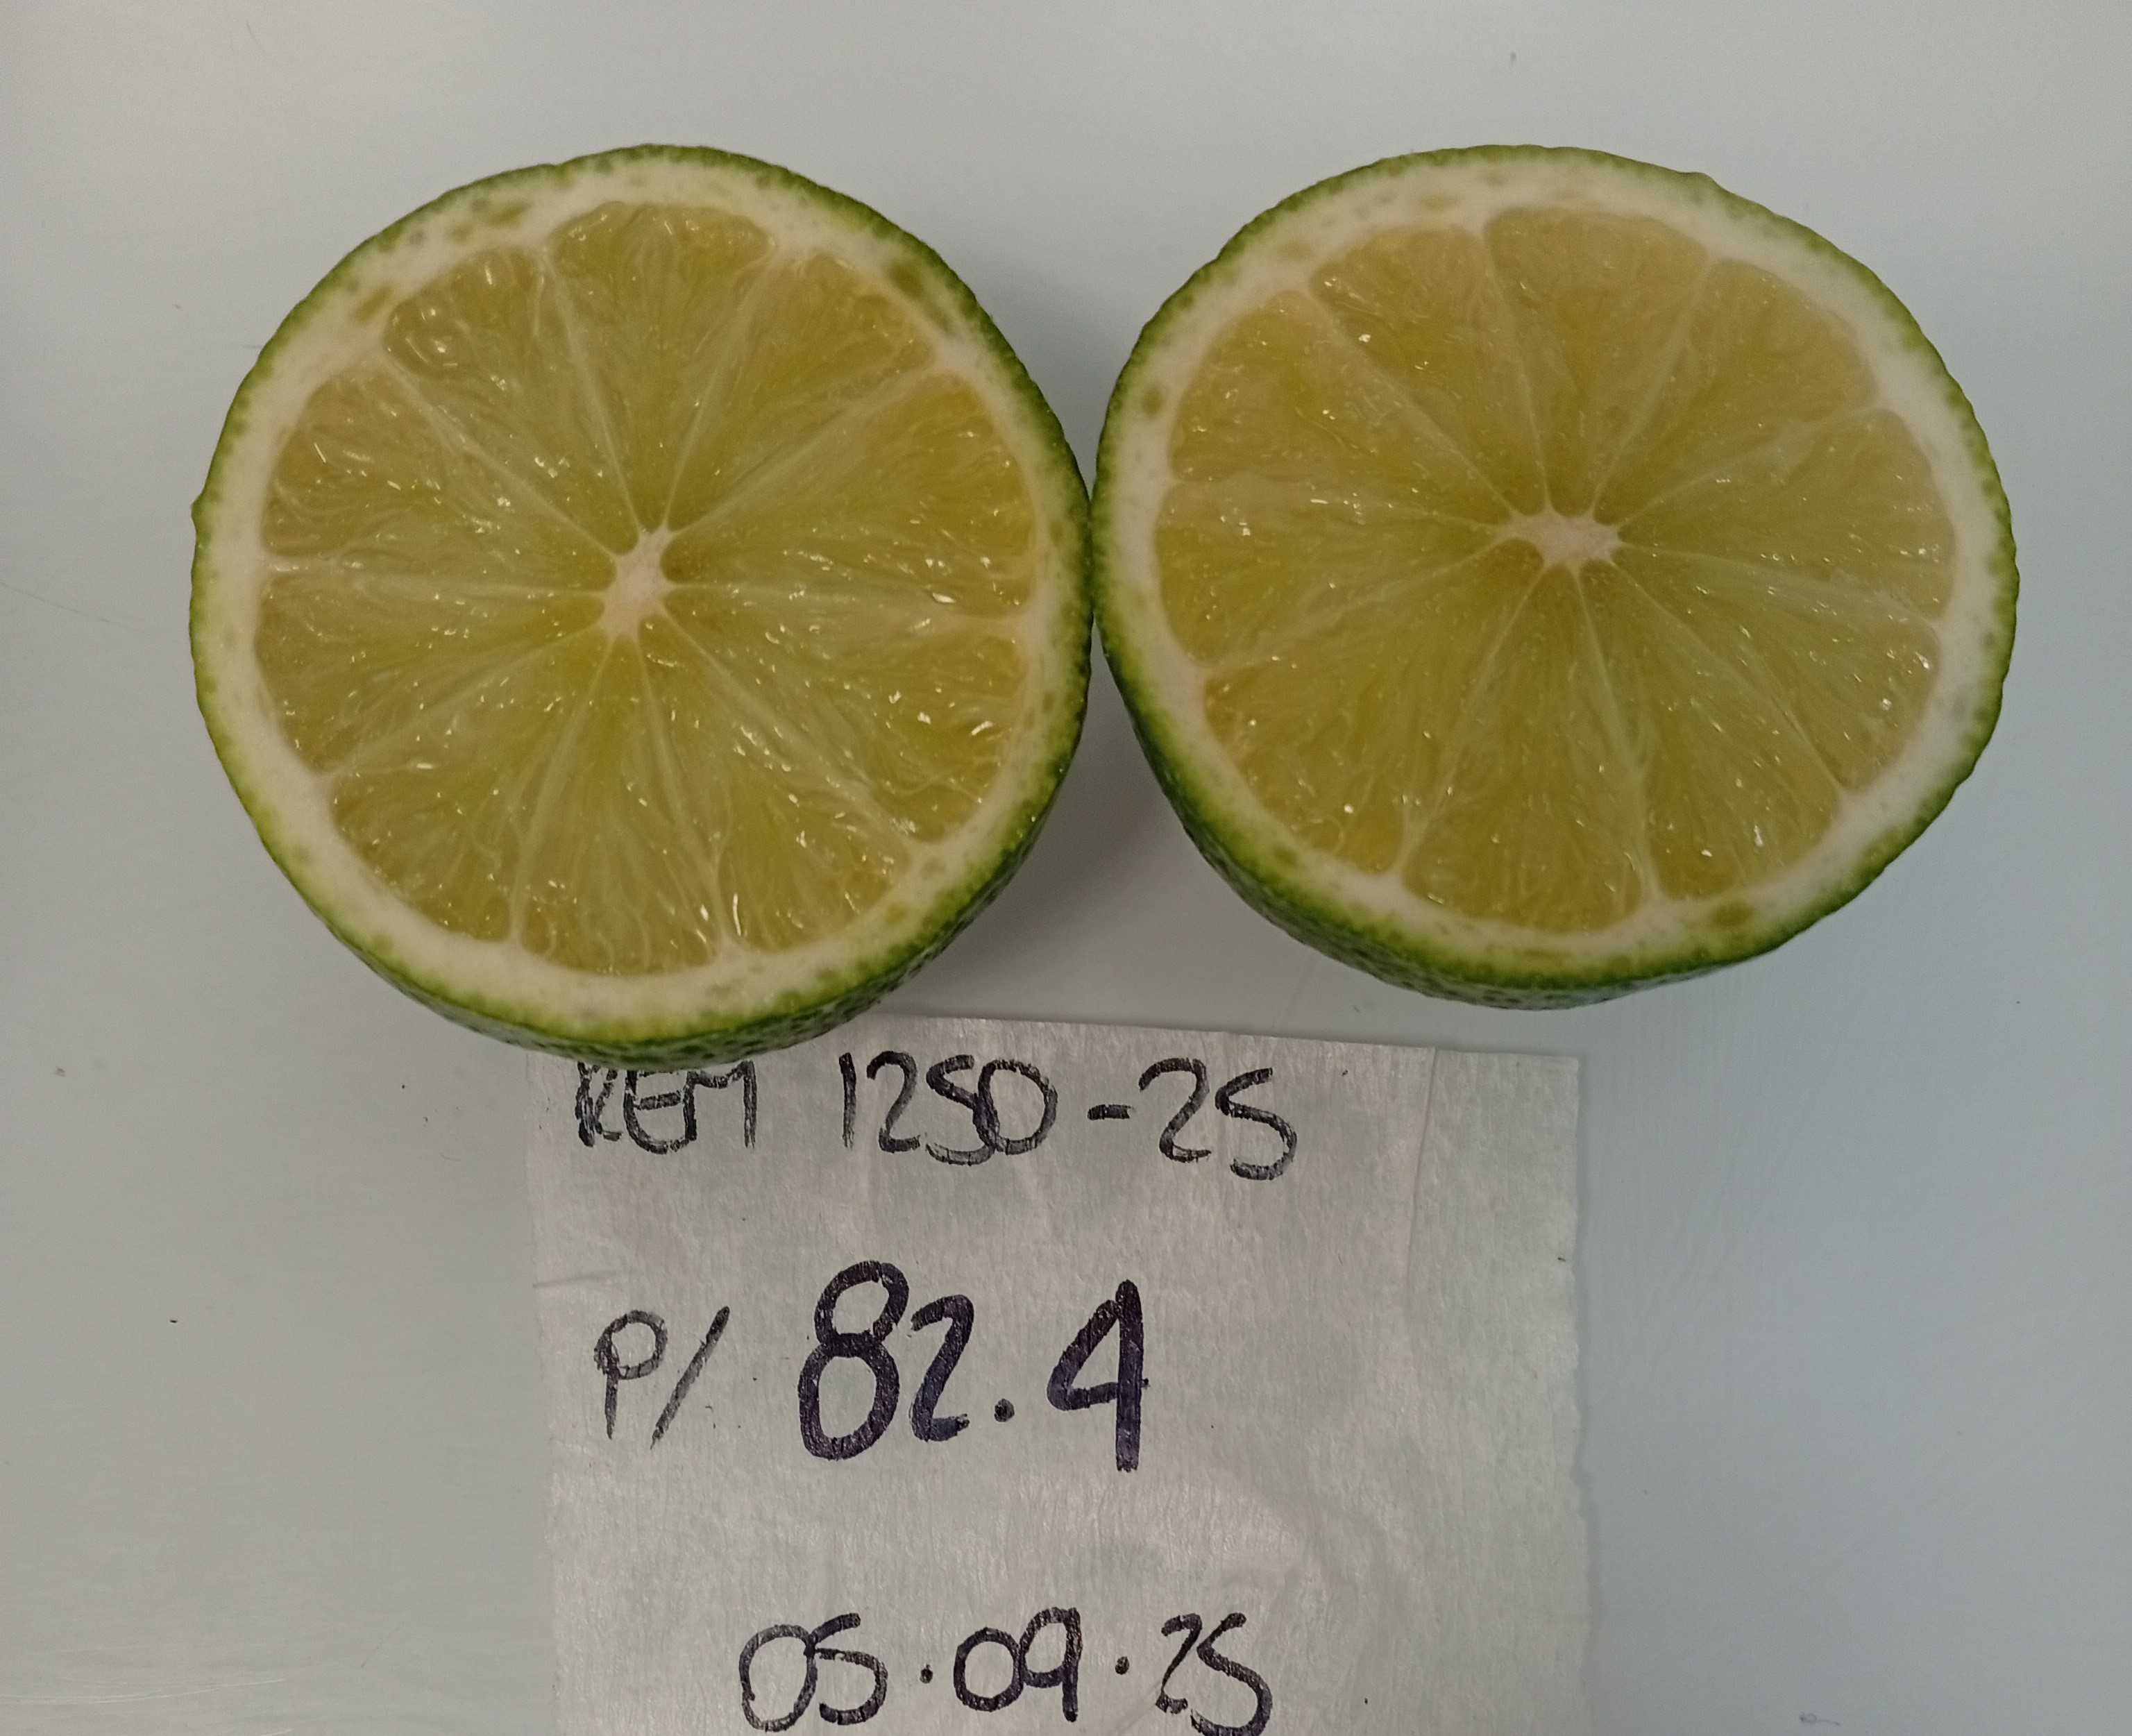 REM 1250-25
P/ 82.4
05.09.25